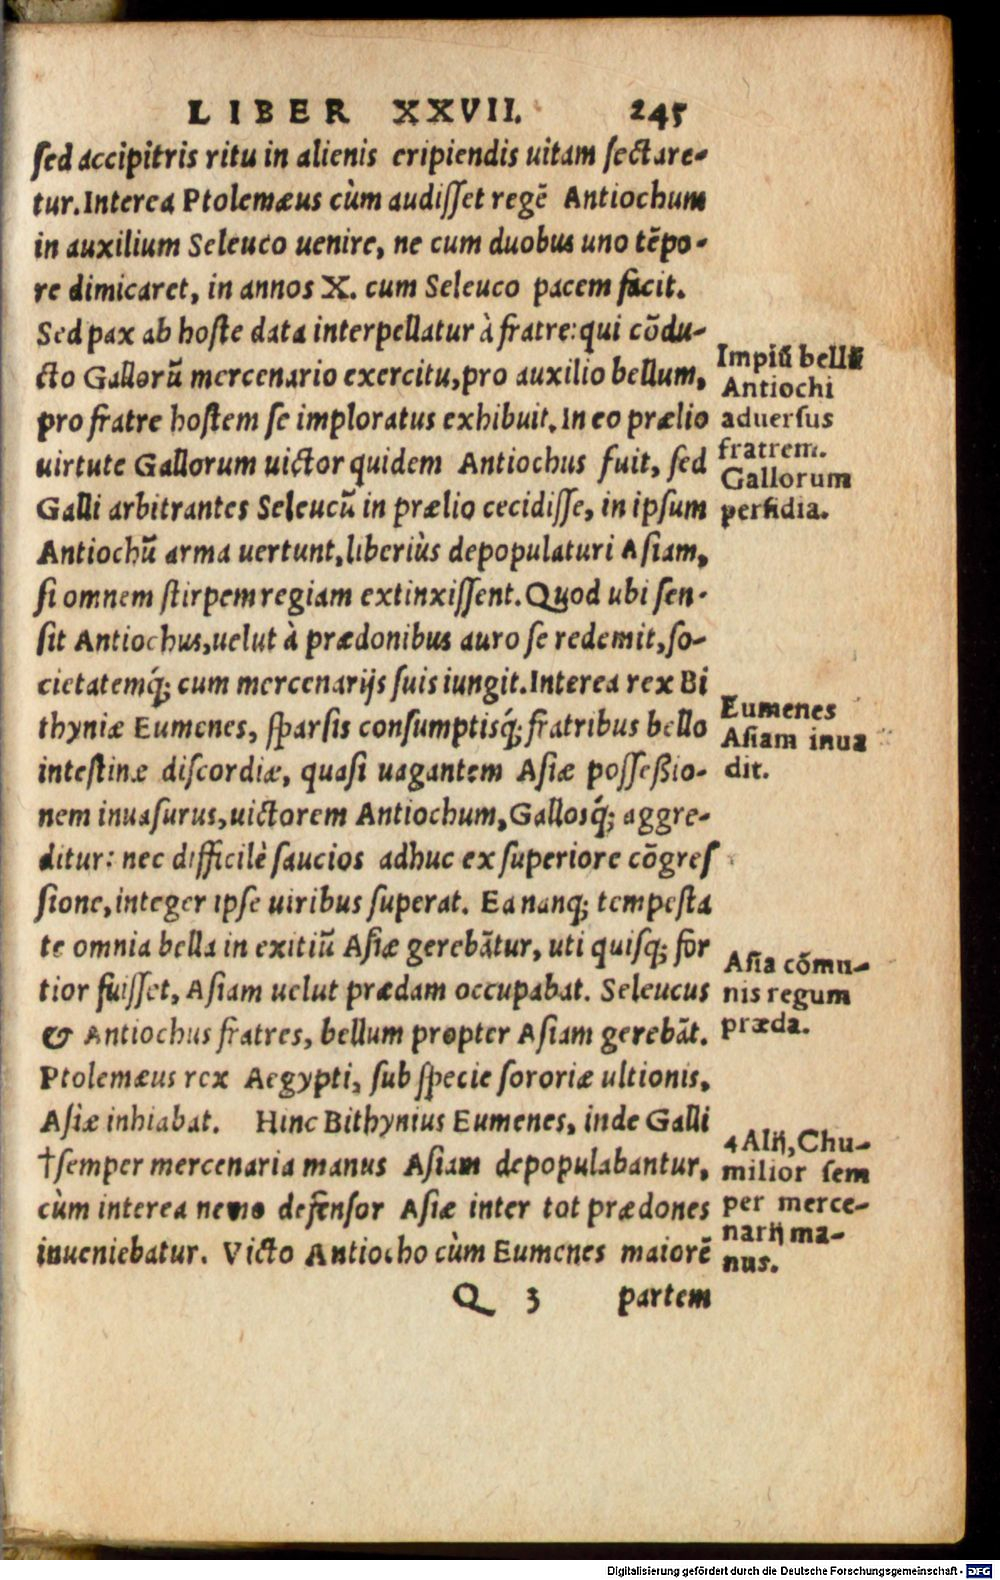 LIBER XXVII. 245
sed accipitris ritu in alienis eripiendis uitam sectare-
tur. Interea Ptolemæus cùm audisset regē Antiochum
in auxilium Seleuco uenire, ne cum duobus uno tēpo-
re dimicaret, in annos X. cum Seleuco pacem facit.
Sed pax ab hoste data interpellatur à fratre: qui cōdu-
cto Gallorū mercenario exercitu, pro auxilio bellum,
pro fratre hostem se imploratus exhibuit. In eo prælio
uirtute Gallorum uictor quidem Antiochus fuit, sed
Galli arbitrantes Seleucū in prælio cecidisse, in ipsum
Antiochū arma uertunt, liberiùs depopulaturi Asiam,
si omnem stirpem regiam extinxissent. Quod ubi sen-
sit Antiochus, uelut à prædonibus auro se redemit, so-
cietatemq́; cum mercenarijs suis iungit. Interea rex Bi
thyniæ Eumenes, sparsis consumptisq́; fratribus bello
intestinæ discordiæ, quasi uagantem Asiæ possessio-
nem inuasurus, uictorem Antiochum, Gallosq́; aggre-
ditur: nec difficilè saucios adhuc ex superiore cōgres
sione, integer ipse uiribus superat. Ea nanq; tempesta
te omnia bella in exitiū Asiæ gerebātur, uti quisq; for
tior fuisset, Asiam uelut prædam occupabat. Seleucus
& Antiochus fratres, bellum propter Asiam gerebāt.
Ptolemæus rex Aegypti, sub specie sororiæ ultionis,
Asiæ inhiabat. Hinc Bithynius Eumenes, inde Galli
†semper mercenaria manus Asiam depopulabantur,
cùm interea nemo defensor Asiæ inter tot prædones
inueniebatur. Victo Antiocho cùm Eumenes maiorē
Q 3 partem
Impiū bellū
Antiochi
aduersus
fratrem.
Gallorum
perfidia.
Eumenes
Asiam inua
dit.
Asia cōmu-
nis regum
præda.
4 Alij, Chu-
milior sem
per merce-
narij ma-
nus.
Digitalisierung gefördert durch die Deutsche Forschungsgemeinschaft - DFG